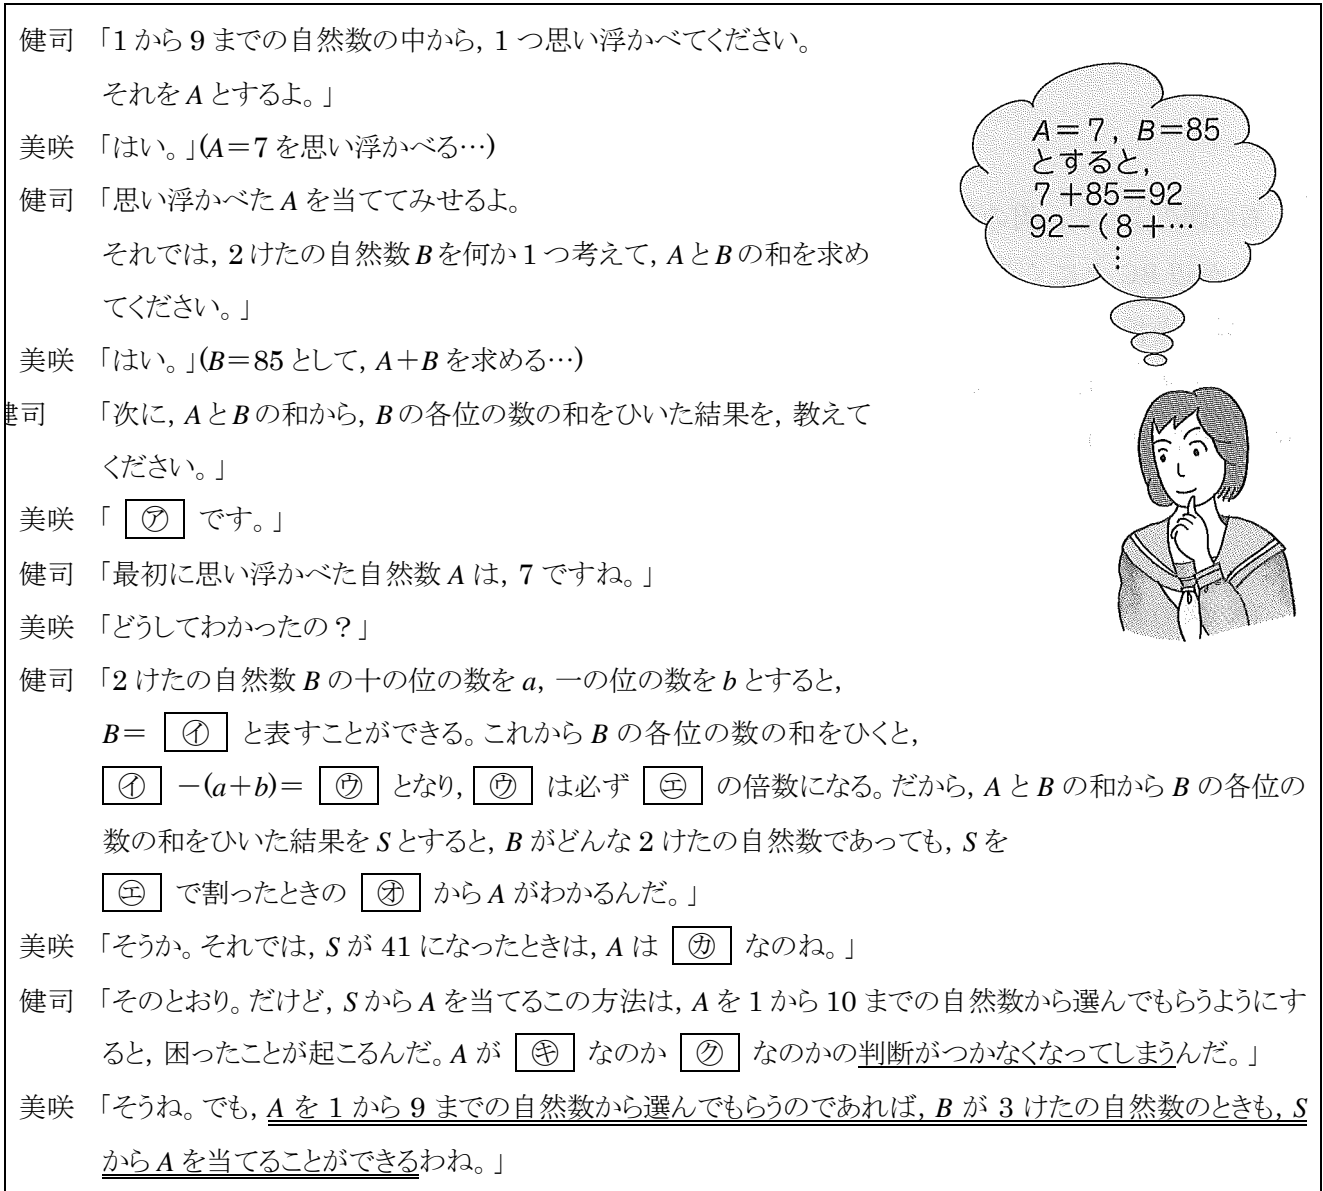 健司 「1 から 9 までの自然数の中から, 1 つ思い浮かべてください。
それを A とするよ。」
美咲 「はい。」(A=7 を思い浮かべる…)
健司 「思い浮かべた A を当ててみせるよ。
それでは, 2 けたの自然数 B を何か 1 つ考えて, A と B の和を求め
てください。」
美咲 「はい。」(B=85 として, A+B を求める…)
健司 「次に, A と B の和から, B の各位の数の和をひいた結果を, 教えて
ください。」
美咲 「 ㋐ です。」
健司 「最初に思い浮かべた自然数 A は, 7 ですね。」
美咲 「どうしてわかったの?」
健司 「2 けたの自然数 B の十の位の数を a, 一の位の数を b とすると,
B= ㋑ と表すことができる。これから B の各位の数の和をひくと,
㋑ -(a+b)= ㋒ となり, ㋒ は必ず ㋓ の倍数になる。だから, A と B の和から B の各位の
数の和をひいた結果を S とすると, B がどんな 2 けたの自然数であっても, S を
㋓ で割ったときの ㋔ から A がわかるんだ。」
美咲 「そうか。それでは, S が 41 になったときは, A は ㋕ なのね。」
健司 「そのとおり。だけど, S から A を当てるこの方法は, A を 1 から 10 までの自然数から選んでもらうようにす
ると, 困ったことが起こるんだ。A が ㋖ なのか ㋗ なのかの判断がつかなくなってしまうんだ。」
美咲 「そうね。でも, A を 1 から 9 までの自然数から選んでもらうのであれば, B が 3 けたの自然数のときも, S
から A を当てることができるわね。」
A=7, B=85
とすると,
7+85=92
92-(8+…
⋮